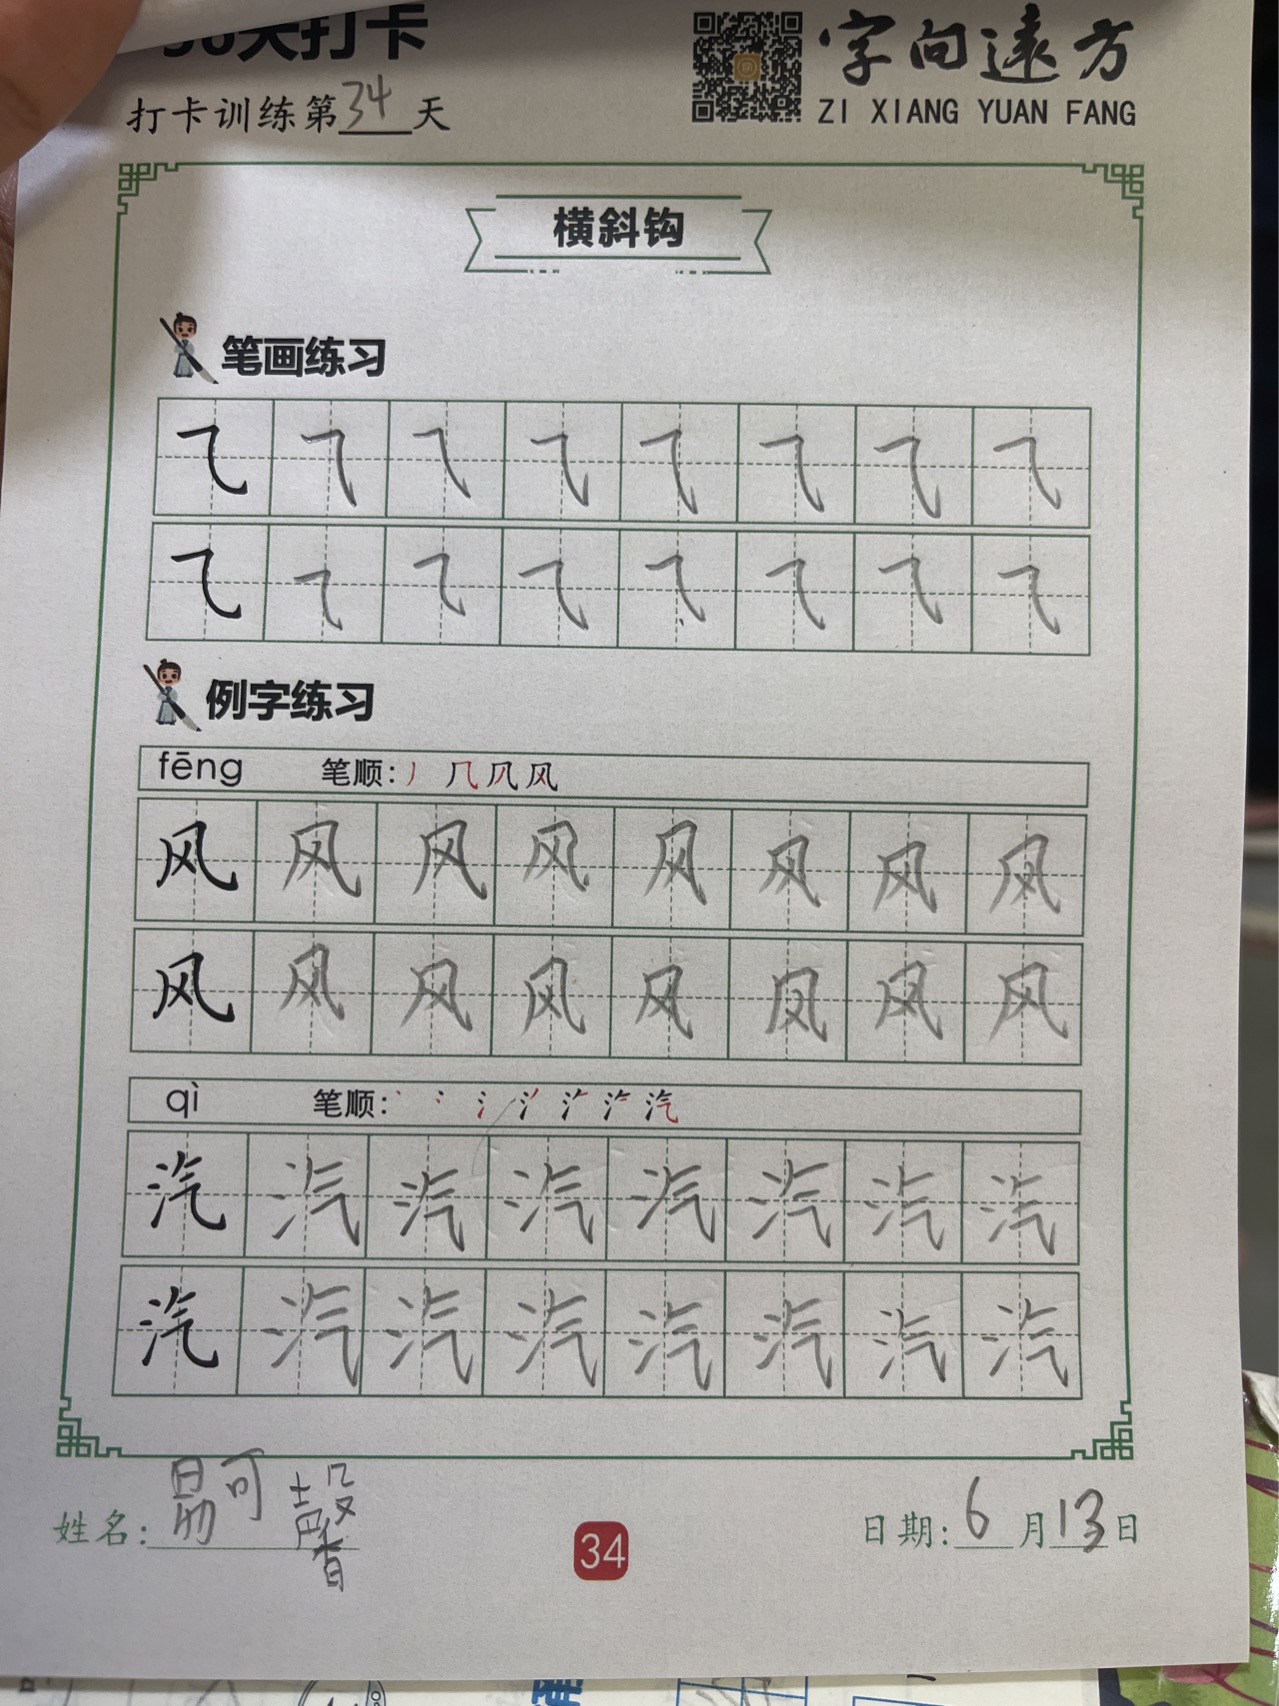 天打卡
打卡训练第34天
字向遠方
ZI XIANG YUAN FANG
横斜钩
笔画练习
㇈ ㇈ ㇈ ㇈ ㇈ ㇈ ㇈ ㇈
㇈ ㇈ ㇈ ㇈ ㇈ ㇈ ㇈ ㇈
例字练习
fēng 笔顺: 丿 几 凤 风
风 风 风 风 风 风 风 风
风 风 风 风 风 风 风 风
qì 笔顺: 汽
汽 汽 汽 汽 汽 汽 汽 汽
汽 汽 汽 汽 汽 汽 汽 汽
姓名: 易可馨
34
日期: 6月13日